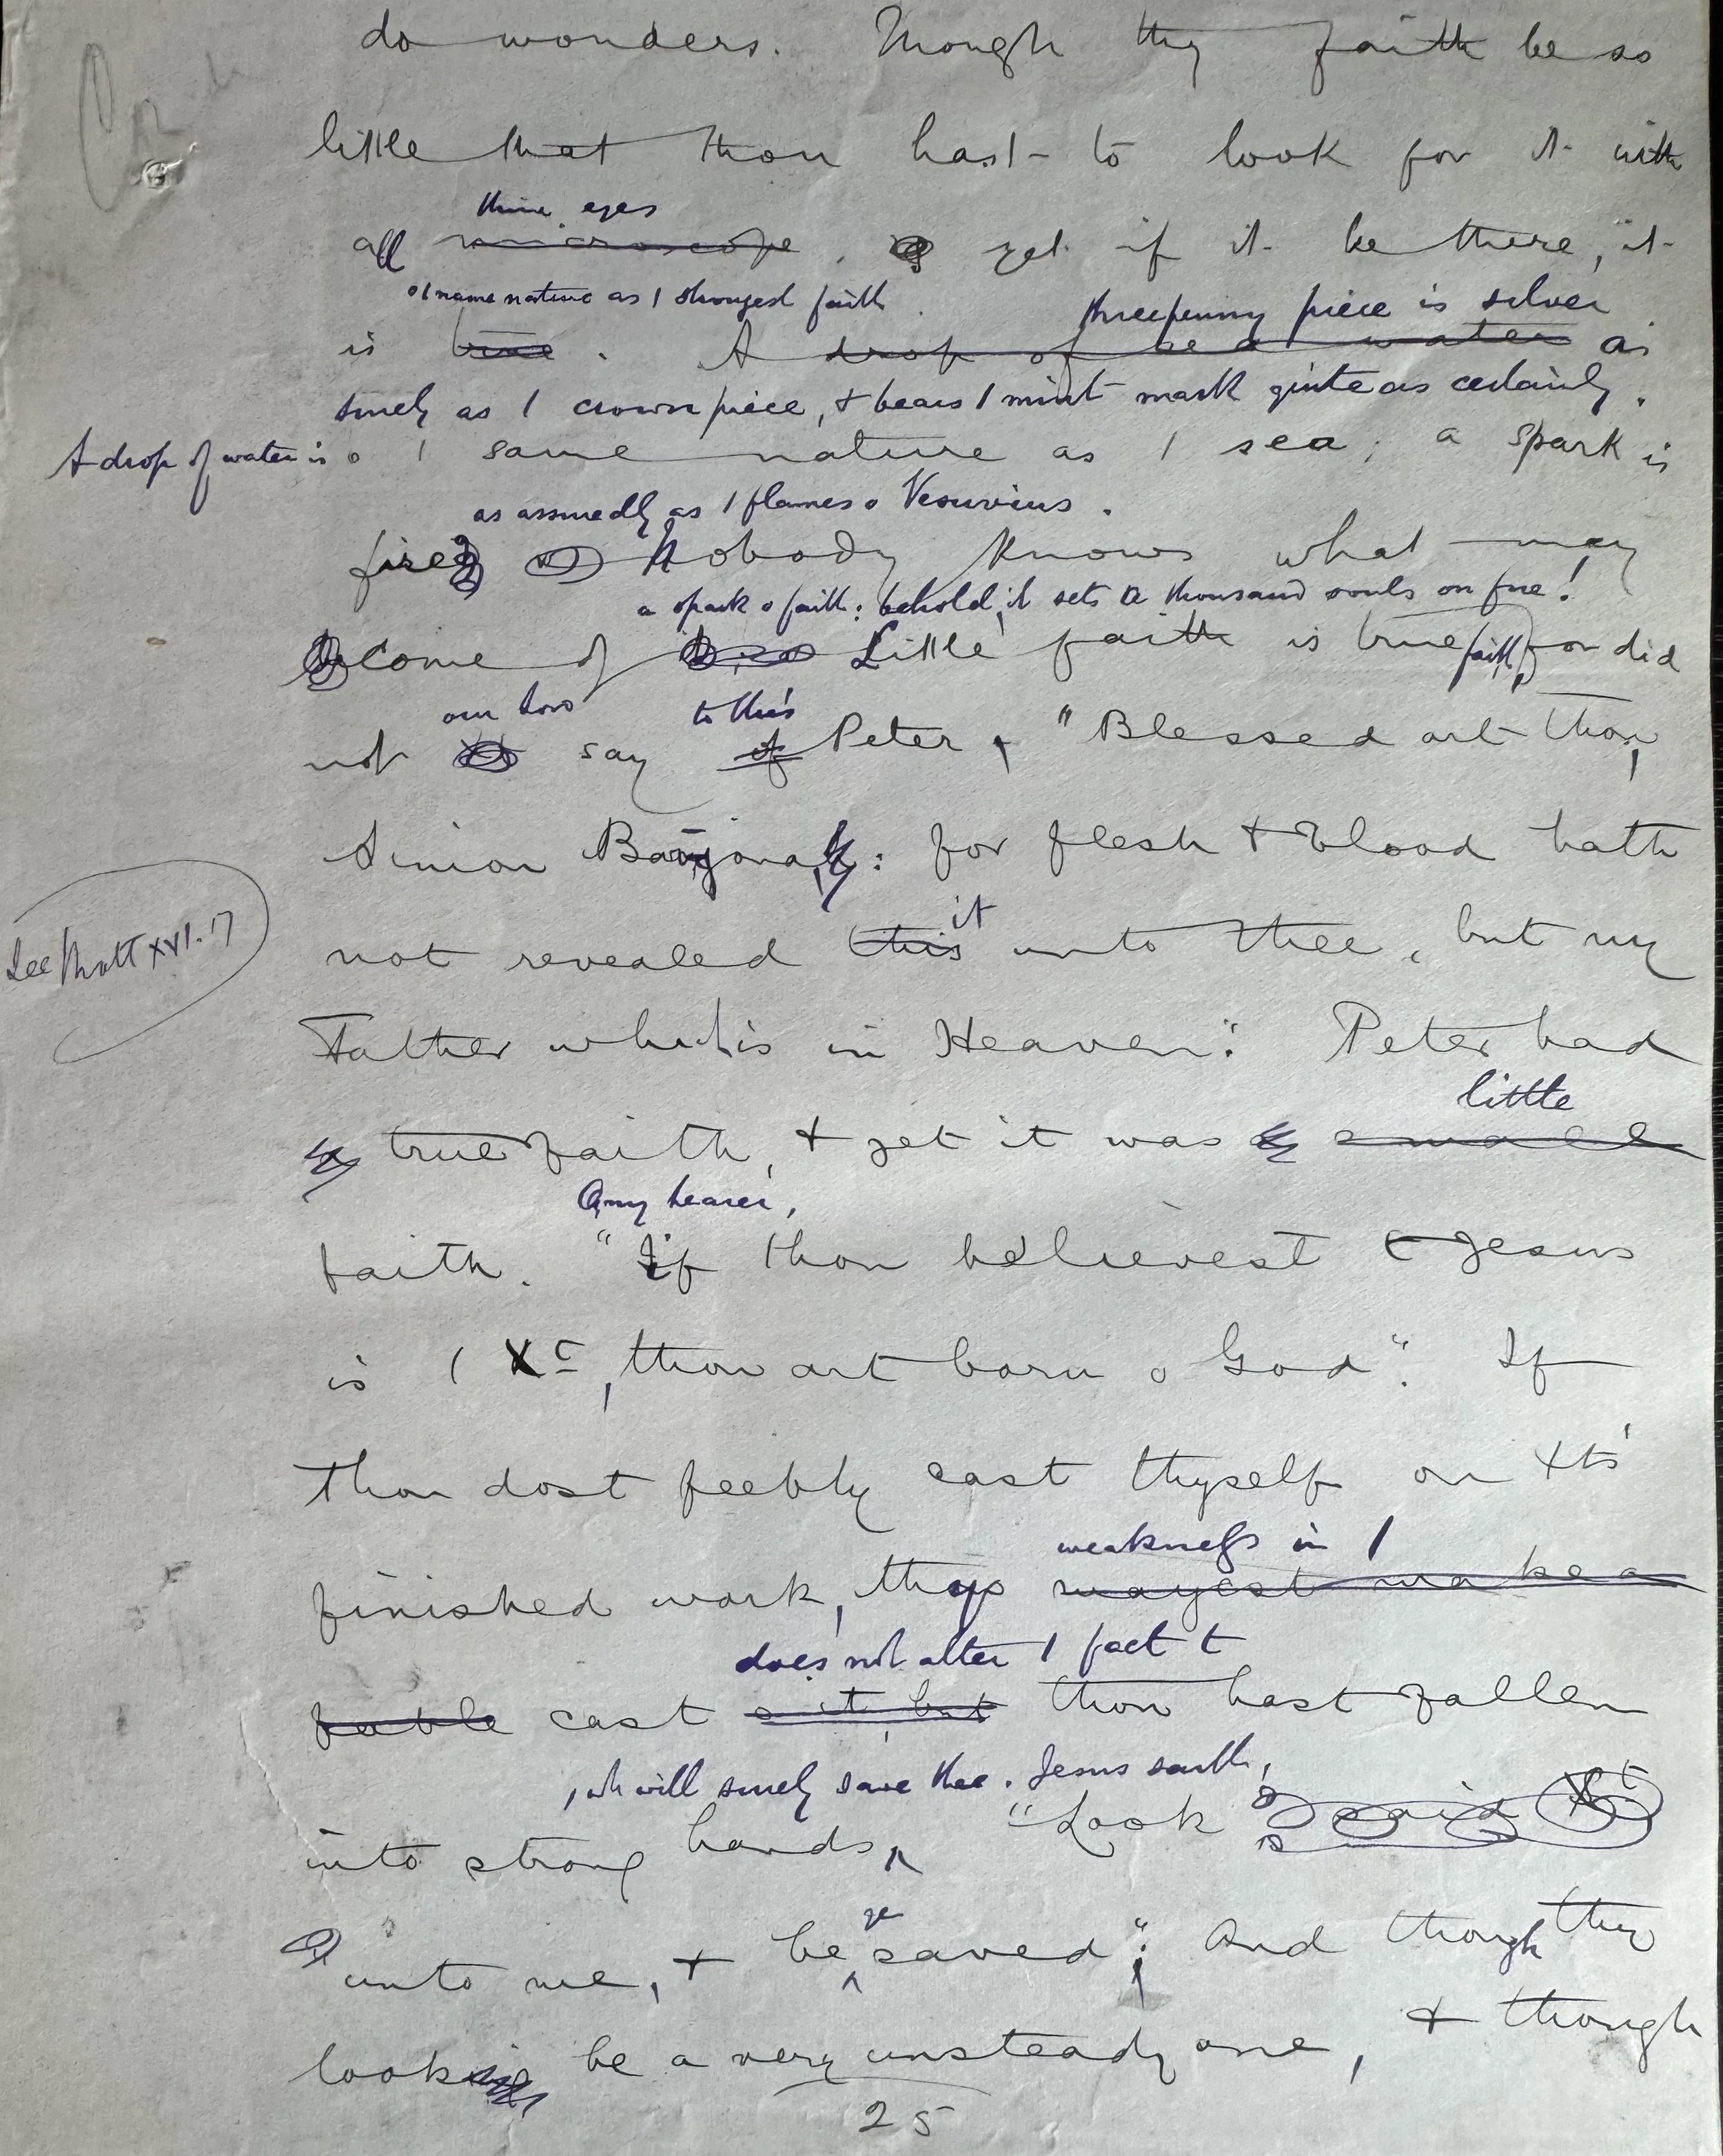 do wonders. Though thy faith be so
little that thou hast to look for it with
thine eyes
all microscope. yet if it be there, it
o 1 same nature as 1 strongest faith. threepenny piece is silver
is true. A drop of sea water as
surely as 1 crown piece, & bears 1 mint mark quite as certainly.
A drop of water is o 1 same nature as 1 sea; a spark is
as assuredly as 1 flames o Vesuvius.
fire Nobody knows what may
a spark o faith: behold, it sets a thousand souls on fire!
come of Little faith is true faith, for did
our Lord to this
not say of Peter, "Blessed art thou,
Simon Bar-jona: for flesh & blood hath
it
not revealed this unto thee, but my
See Matt XVI. 17
Father which is in Heaven." Peter had
little
true faith, & yet it was small
O my hearer,
faith. "If thou believest t Jesus
is 1 Xt, thou art born o God". If
thou dost feebly cast thyself on Xt's
weakness in 1
finished work, thy mayest make a
does not alter 1 fact t
feeble cast o it, but thou hast fallen
, wh will surely save thee. Jesus saith,
into strong hands, "Look said Xt
ye
unto me, & be saved": And though thy
look be a very unsteady one, & though
25